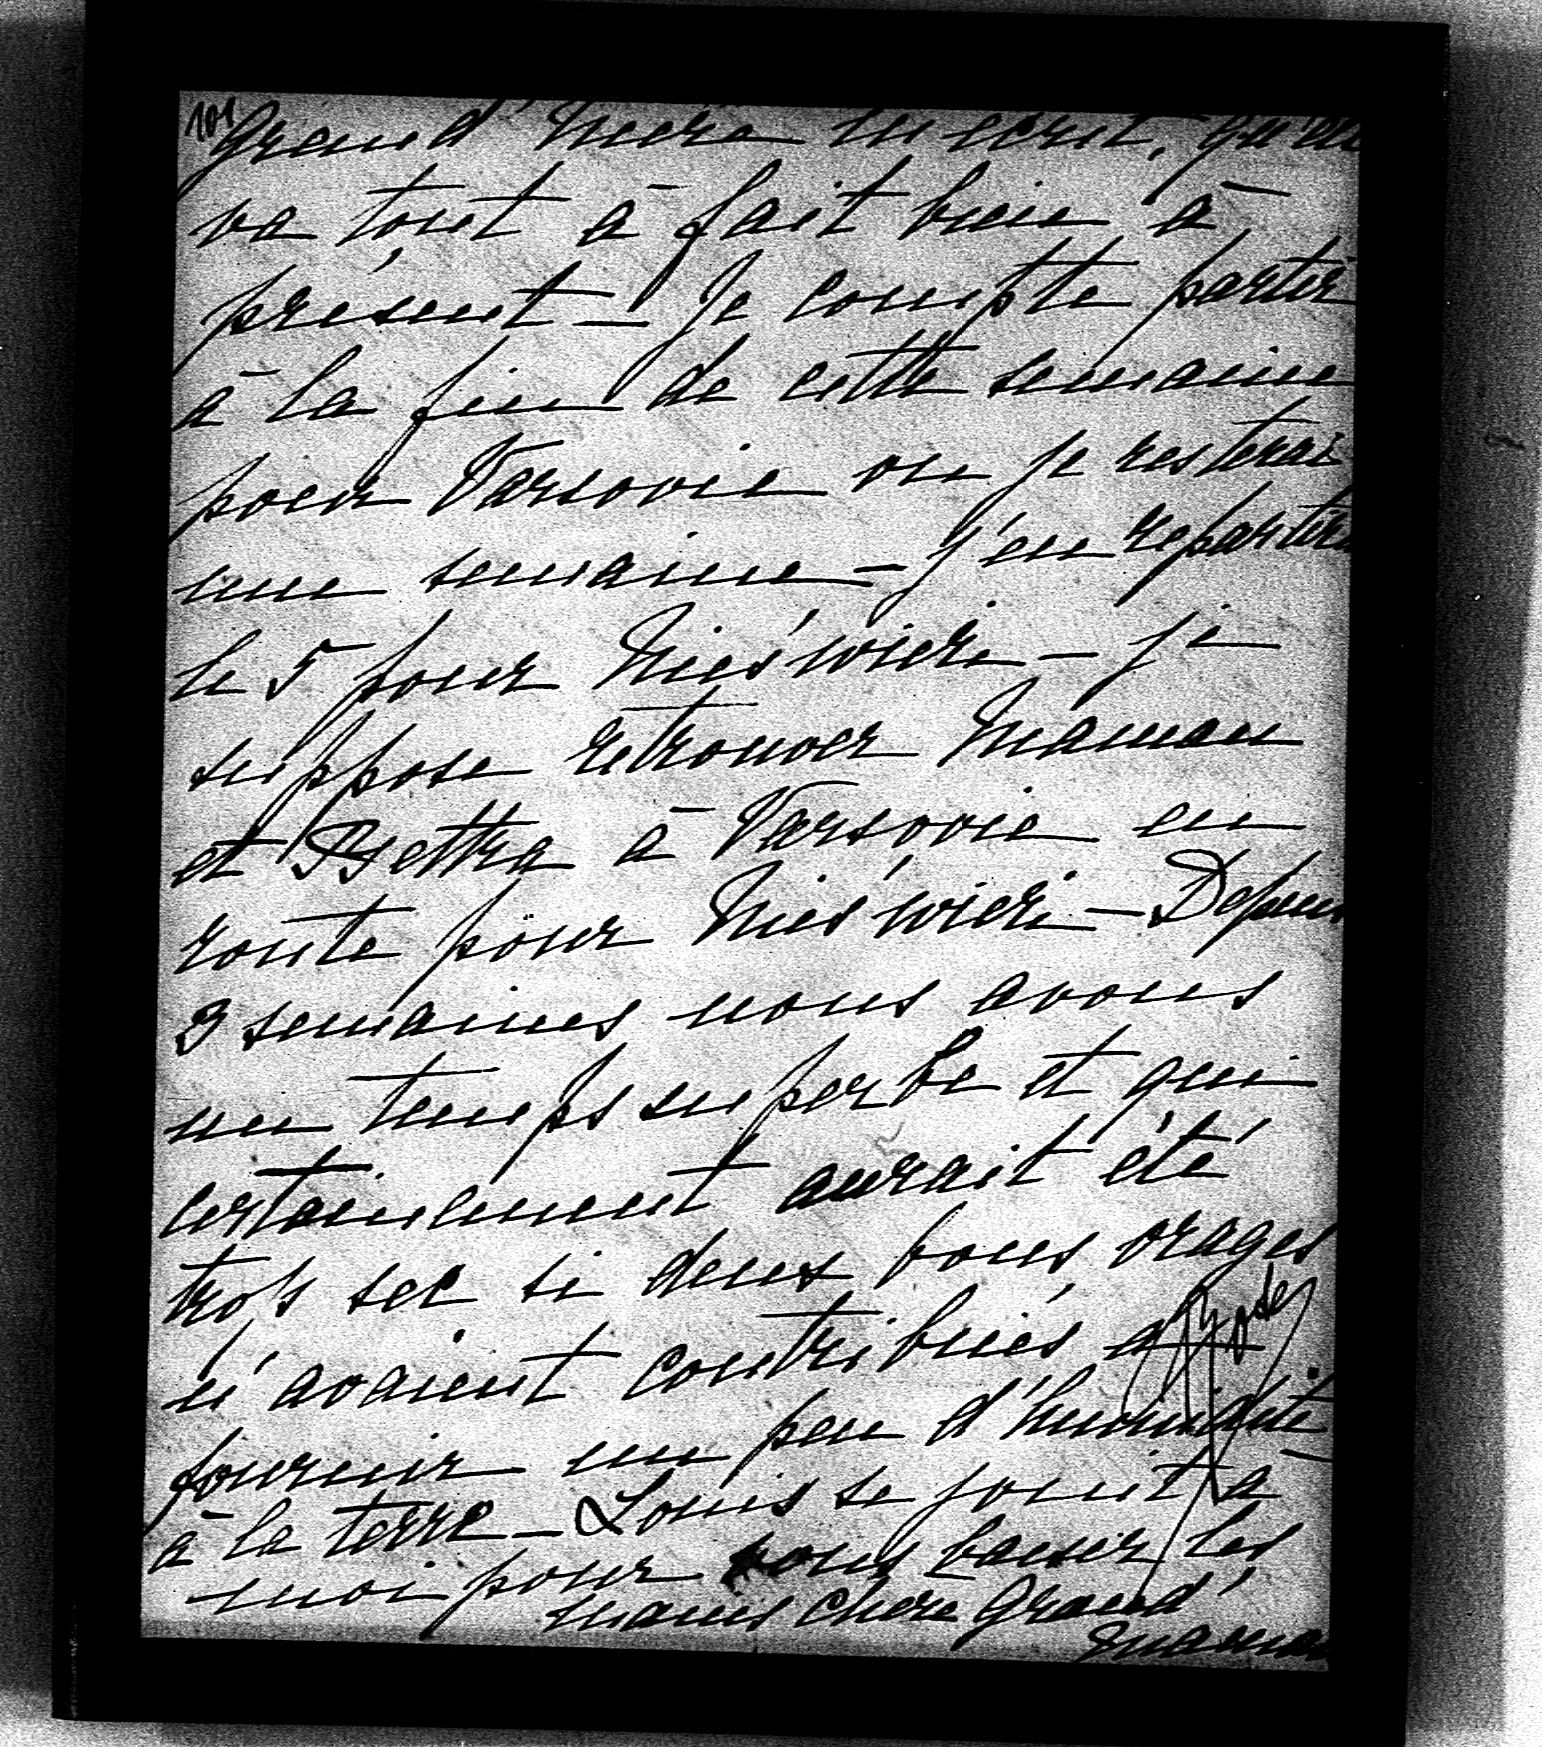 101
Grand' Mère m'écrit, qu'el
va tout à fait bien à
présent — Je compte partir
à la fin de cette semaine
pour Varsovie ou je resterai
une semaine — j'en repartira
le 5 pour Nieświerz — je
suppose retrouver Maman
et Bettra à Varsovie en
route pour Nieświerz — Depuis
3 semaines nous avons
un temps superbe et qui
certainement aurait été
trop sec si deux bons orages
n'avaient contribués a
fournir un peu d'humidité
à la terre — Louis se jouit à
moi pour vous baiser les
mains chère Grand'
maman